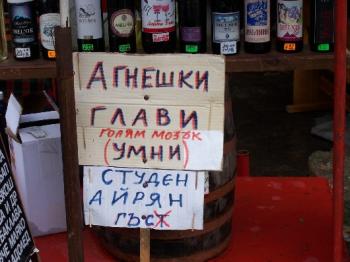 АГНЕШКИ
ГЛАВИ
ГОЛЯМ МОЗЪК
(УМНИ)
СТУДЕН
АЙРЯН
ГЪСТ